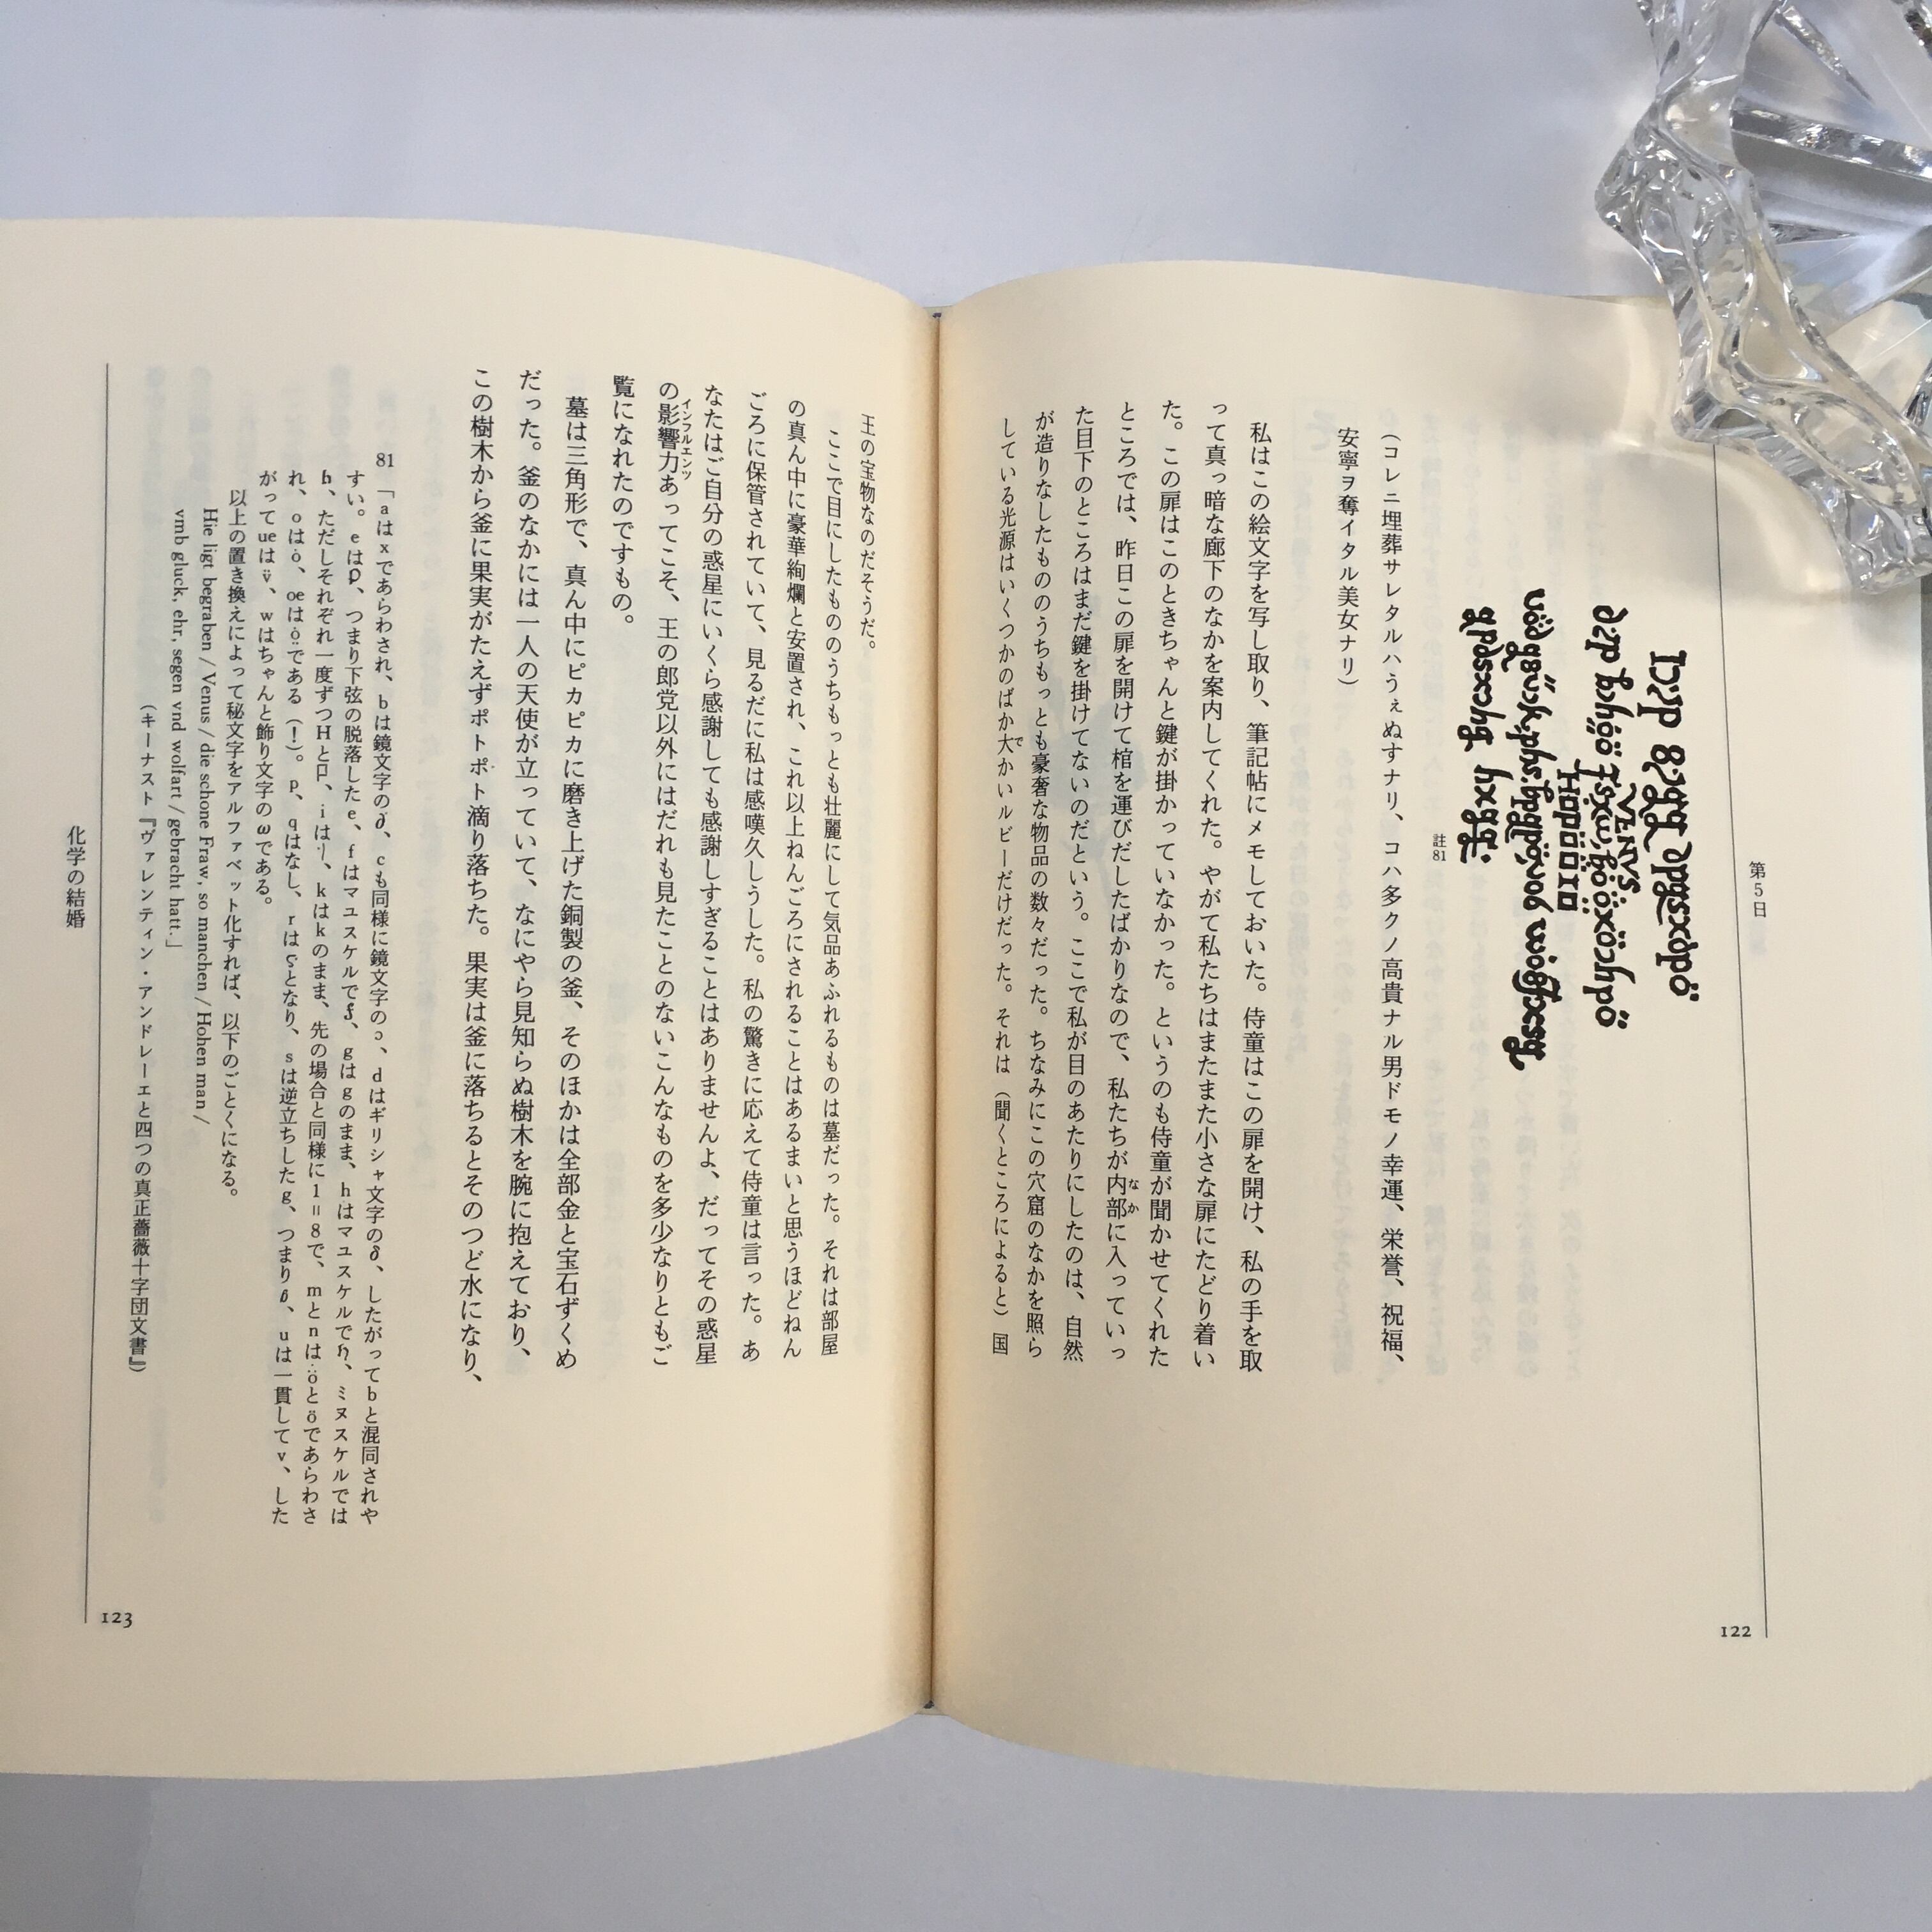 第5日
VENVS
註81
（コレニ埋葬サレタルハうぇぬすナリ、コハ多クノ高貴ナル男ドモノ幸運、栄誉、祝福、
安寧ヲ奪イタル美女ナリ）
私はこの絵文字を写し取り、筆記帖にメモしておいた。侍童はこの扉を開け、私の手を取
って真っ暗な廊下のなかを案内してくれた。やがて私たちはまたまた小さな扉にたどり着い
た。この扉はこのときちゃんと鍵が掛かっていなかった。というのも侍童が聞かせてくれた
ところでは、昨日この扉を開けて棺を運びだしたばかりなので、私たちが内部に入っていっ
た目下のところはまだ鍵を掛けてないのだという。ここで私が目のあたりにしたのは、自然
が造りなしたもののうちもっとも豪奢な物品の数々だった。ちなみにこの穴窟のなかを照ら
している光源はいくつかのばか大かいルビーだけだった。それは（聞くところによると）国
122
王の宝物なのだそうだ。
ここで目にしたもののうちもっとも壮麗にして気品あふれるものは墓だった。それは部屋
の真ん中に豪華絢爛と安置され、これ以上ねんごろにされることはあるまいと思うほどねん
ごろに保管されていて、見るだに私は感嘆久しうした。私の驚きに応えて侍童は言った。あ
なたはご自分の惑星にいくら感謝しても感謝しすぎることはありませんよ、だってその惑星
の影響力あってこそ、王の郎党以外にはだれも見たことのないこんなものを多少なりともご
覧になれたのですもの。
墓は三角形で、真ん中にピカピカに磨き上げた銅製の釜、そのほかは全部金と宝石ずくめ
だった。釜のなかには一人の天使が立っていて、なにやら見知らぬ樹木を腕に抱えており、
この樹木から釜に果実がたえずポトポト滴り落ちた。果実は釜に落ちるとそのつど水になり、
81
「aはxであらわされ、bは鏡文字のd、cも同様に鏡文字のɔ、dはギリシャ文字のδ、したがってbと混同されや
すい。eはp、つまり下弦の脱落したe、fはマユスケルで、gはgのまま、hはマユスケルで、ミヌスケルでは
h、ただしそれぞれ一度ずつHと、iは、kはkのまま、先の場合と同様に1=8で、mとnはöとöであらわさ
れ、oはȯ、oeはである（！）。p、qはなし、rはςとなり、sは逆立ちしたg、つまり、uは一貫してv、した
がってueはv̈、wはちゃんと飾り文字のωである。
以上の置き換えによって秘文字をアルファベット化すれば、以下のごとくになる。
Hie ligt begraben / Venus / die schone Fraw, so manchen / Hohen man /
vmb gluck, ehr, segen vnd wolfart / gebracht hatt.」
（キーナスト『ヴァレンティン・アンドレーエと四つの真正薔薇十字団文書』）
化学の結婚
123